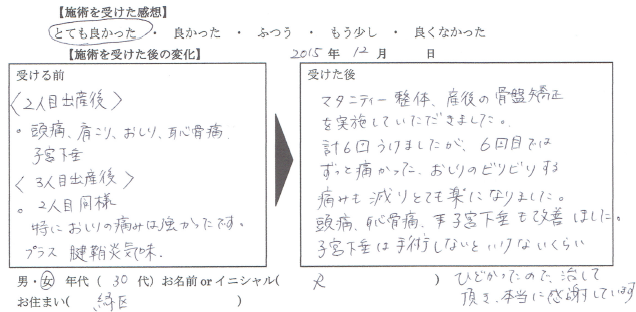 【施術を受けた感想】
とても良かった ・ 良かった ・ ふつう ・ もう少し ・ 良くなかった
【施術を受けた後の変化】 2015年 12月 日
受ける前
〈2人目出産後〉
。頭痛、肩こり、おしり、恥骨痛、
子宮下垂
〈3人目出産後〉
。2人目同様
特におしりの痛みは強かたです。
プラス 腱鞘炎気味.
受けた後
マタニティー整体、産後の骨盤矯正
を実施していただきました。
計6回うけましたが、6回目では
ずっと痛かった、おしりのビリビリする
痛みも減りとても楽になりました。
頭痛、恥骨痛、子宮下垂も改善しました。
子宮下垂は手術しないといけないくらい
ひどかったので、治して
頂き、本当に感謝しています
男・女 年代( 30 代) お名前 or イニシャル( )
お住まい( 区 )